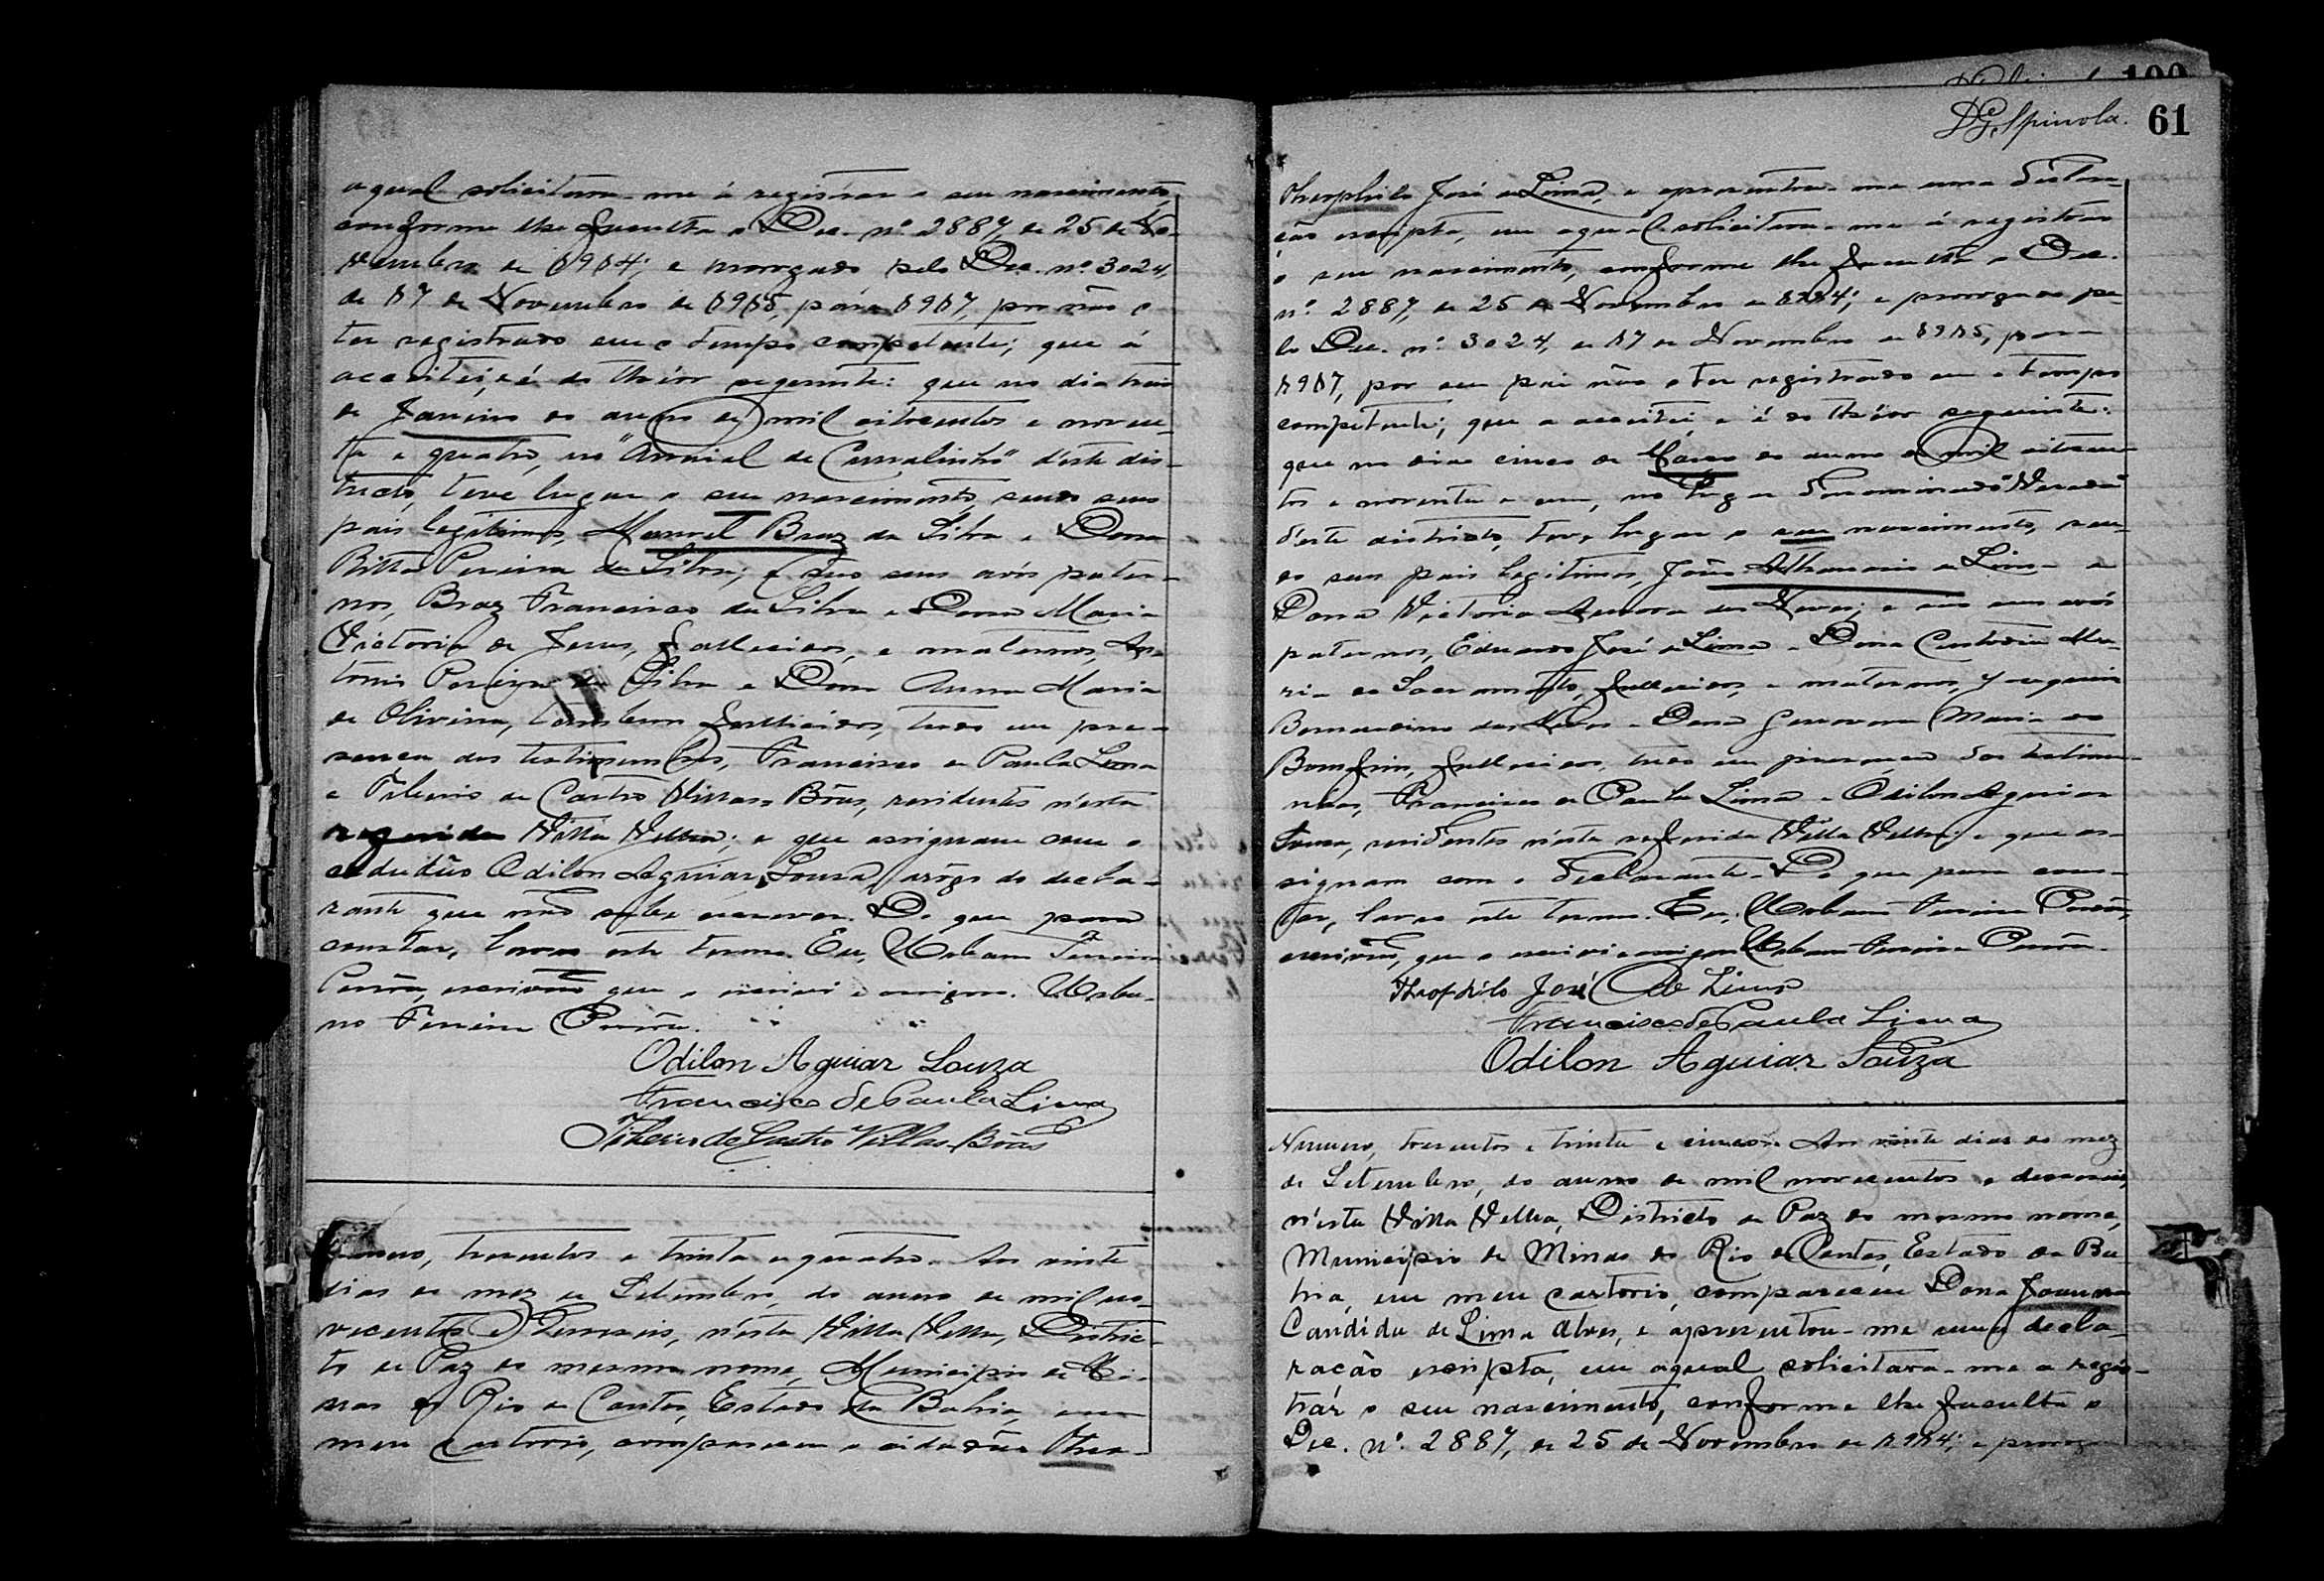 aqual solicitava-me á registrar o seu nascimento,
conforme lhe faculta o Dec. nº 2887, de 25 de No-
vembro de 1914; e prorogado pelo Dec. nº 3024,
de 17 de Novembro de 1915, para 1917, por não o
ter registrado em o tempo competente; que á
acceitei, e é do theor seguinte: que no dia tres
de Janeiro do anno de mil oitocentos e noven-
ta e quatro, no "Arraial de Curralinho" d'este dis-
tricto, teve lugar o seu nascimento, sendo seus
pais legitimos, Manoel Braz da Silva e Dona
Ritta Pereira da Silva; e são seus avós pater-
nos, Braz Francisco da Silva e Dona Maria
Victoria de Jesus, fallecidos, e maternos, An-
tonio Pereira da Silva e Dona Anna Maria
de Oliveira, tambem fallecidos, tudo em pre-
sença das testimunhas, Francisco de Paula Lima
e Tiberio de Castro Villas-Bôas, residentes n'esta
referida Villa Velha; e que assignam com o
cidadão Odilon Aguiar Souza, arôgo do decla-
rante que não sabe escrever. Do que para
constar, lavro este termo. Eu, Urbano Ferreira
escrivão que o escrevi e assigno. Urba-
no Ferreira
Odilon Aguiar Souza
Francisco de Paula Lima
Tiberio de Castro Villas-Bôas
Numero, trezentos e trinta e quatro. Aos vinte
dias do mez de Setembro, do anno de mil no-
vecentos e deseseis, n'esta Villa Velha, Distric-
to de Paz do mesmo nome, Municipio de Mi-
nas do Rio de Contas, Estado da Bahia, em
meu cartorio, compareceu o cidadão Theo-
D. G. Spinola. 61
Theophilo José de Lima, e apresentou-me uma declara-
ção escripta, em aqual solicitava-me á registrar
o seu nascimento, conforme lhe faculta o Dec.
nº 2887, de 25 de Novembro de 1914; e prorogado pe-
lo Dec. nº 3024, de 17 de Novembro de 1915, para
1917, por seu pai não o ter registrado em o tempo
competente; que a acceitei, e é do theor seguinte:
que no dia cinco de Março do anno de mil oitocen-
tos e noventa e um, no lugar denominado "Vereda"
d'este districto, teve lugar o seu nascimento, sen-
do seus pais legitimos, João Athanasio de Lima e
Dona Victoria das Neves; e são seus avós
paternos, Eduardo José de Lima e Dona Custodia Ma-
ria do Sacramento, fallecidos, e maternos, Joaquim
Bernardino das Neves e Dona Genoveva Maria do
Bomfim, fallecidos, tudo em presença das testimu-
nhas, Francisco de Paula Lima e Odilon Aguiar
Souza, residentes n'esta referida Villa Velha; e que as-
signam com o declarante. Do que para cons-
tar, lavro este termo. Eu, Urbano Ferreira
escrivão, que o escrevi e assigno Urbano Ferreira
Theophilo José de Lima
Francisco de Paula Lima
Odilon Aguiar Souza
Numero, trezentos e trinta e cinco. Aos vinte dias do mez
de Setembro, do anno de mil novecentos e deseseis,
n'esta Villa Velha, Districto de Paz do mesmo nome,
Municipio de Minas do Rio de Contas, Estado da Ba-
hia, em meu cartorio, compareceu Dona Joanna
Candida de Lima Alves, e apresentou-me uma decla-
ração escripta, em aqual solicitava-me a regis-
trar o seu nascimento, conforme lhe faculta o
Dec. nº 2887, de 25 de Novembro de 1914; e proroga